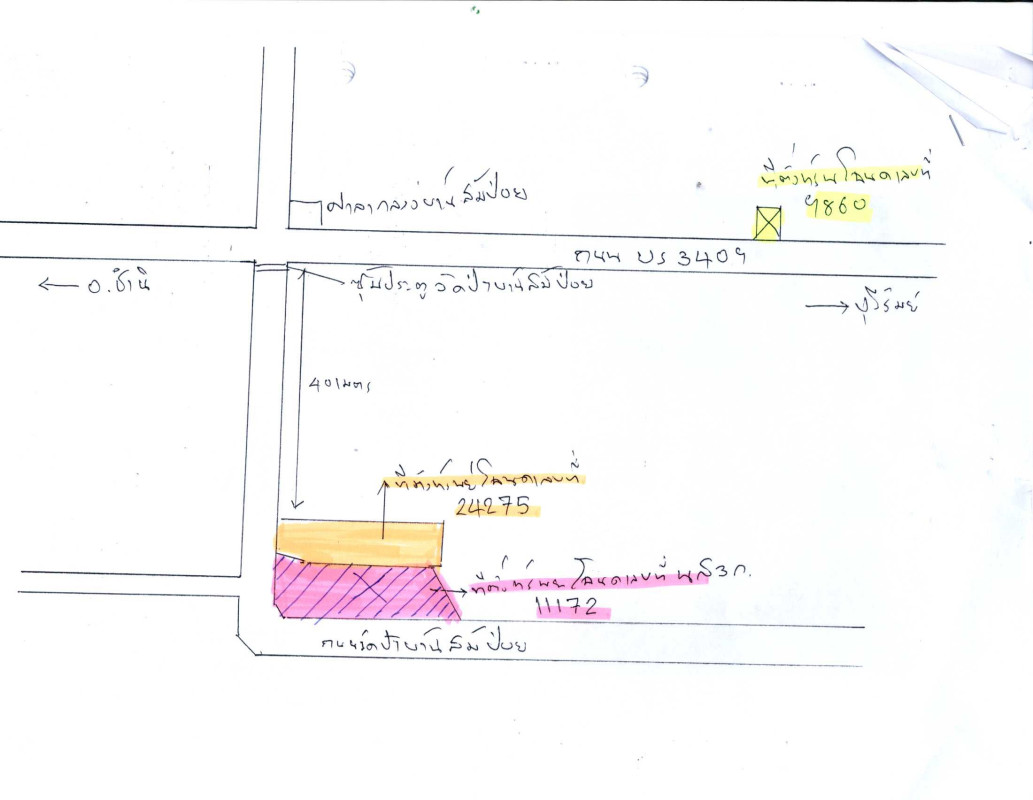 ที่ตั้งทรัพย์โฉนดเลขที่
9860
ศาลากลางบ้านส้มป่อย
ถนน บร 3409
ซุ้มประตูวัดป่าบ้านส้มป่อย
← อ.ชำนิ
→ บุรีรัมย์
40 เมตร
ที่ตั้งทรัพย์โฉนดเลขที่
24275
ที่ตั้งทรัพย์โฉนดเลขที่ นส3ก.
11172
ถนนวัดป่าบ้านส้มป่อย